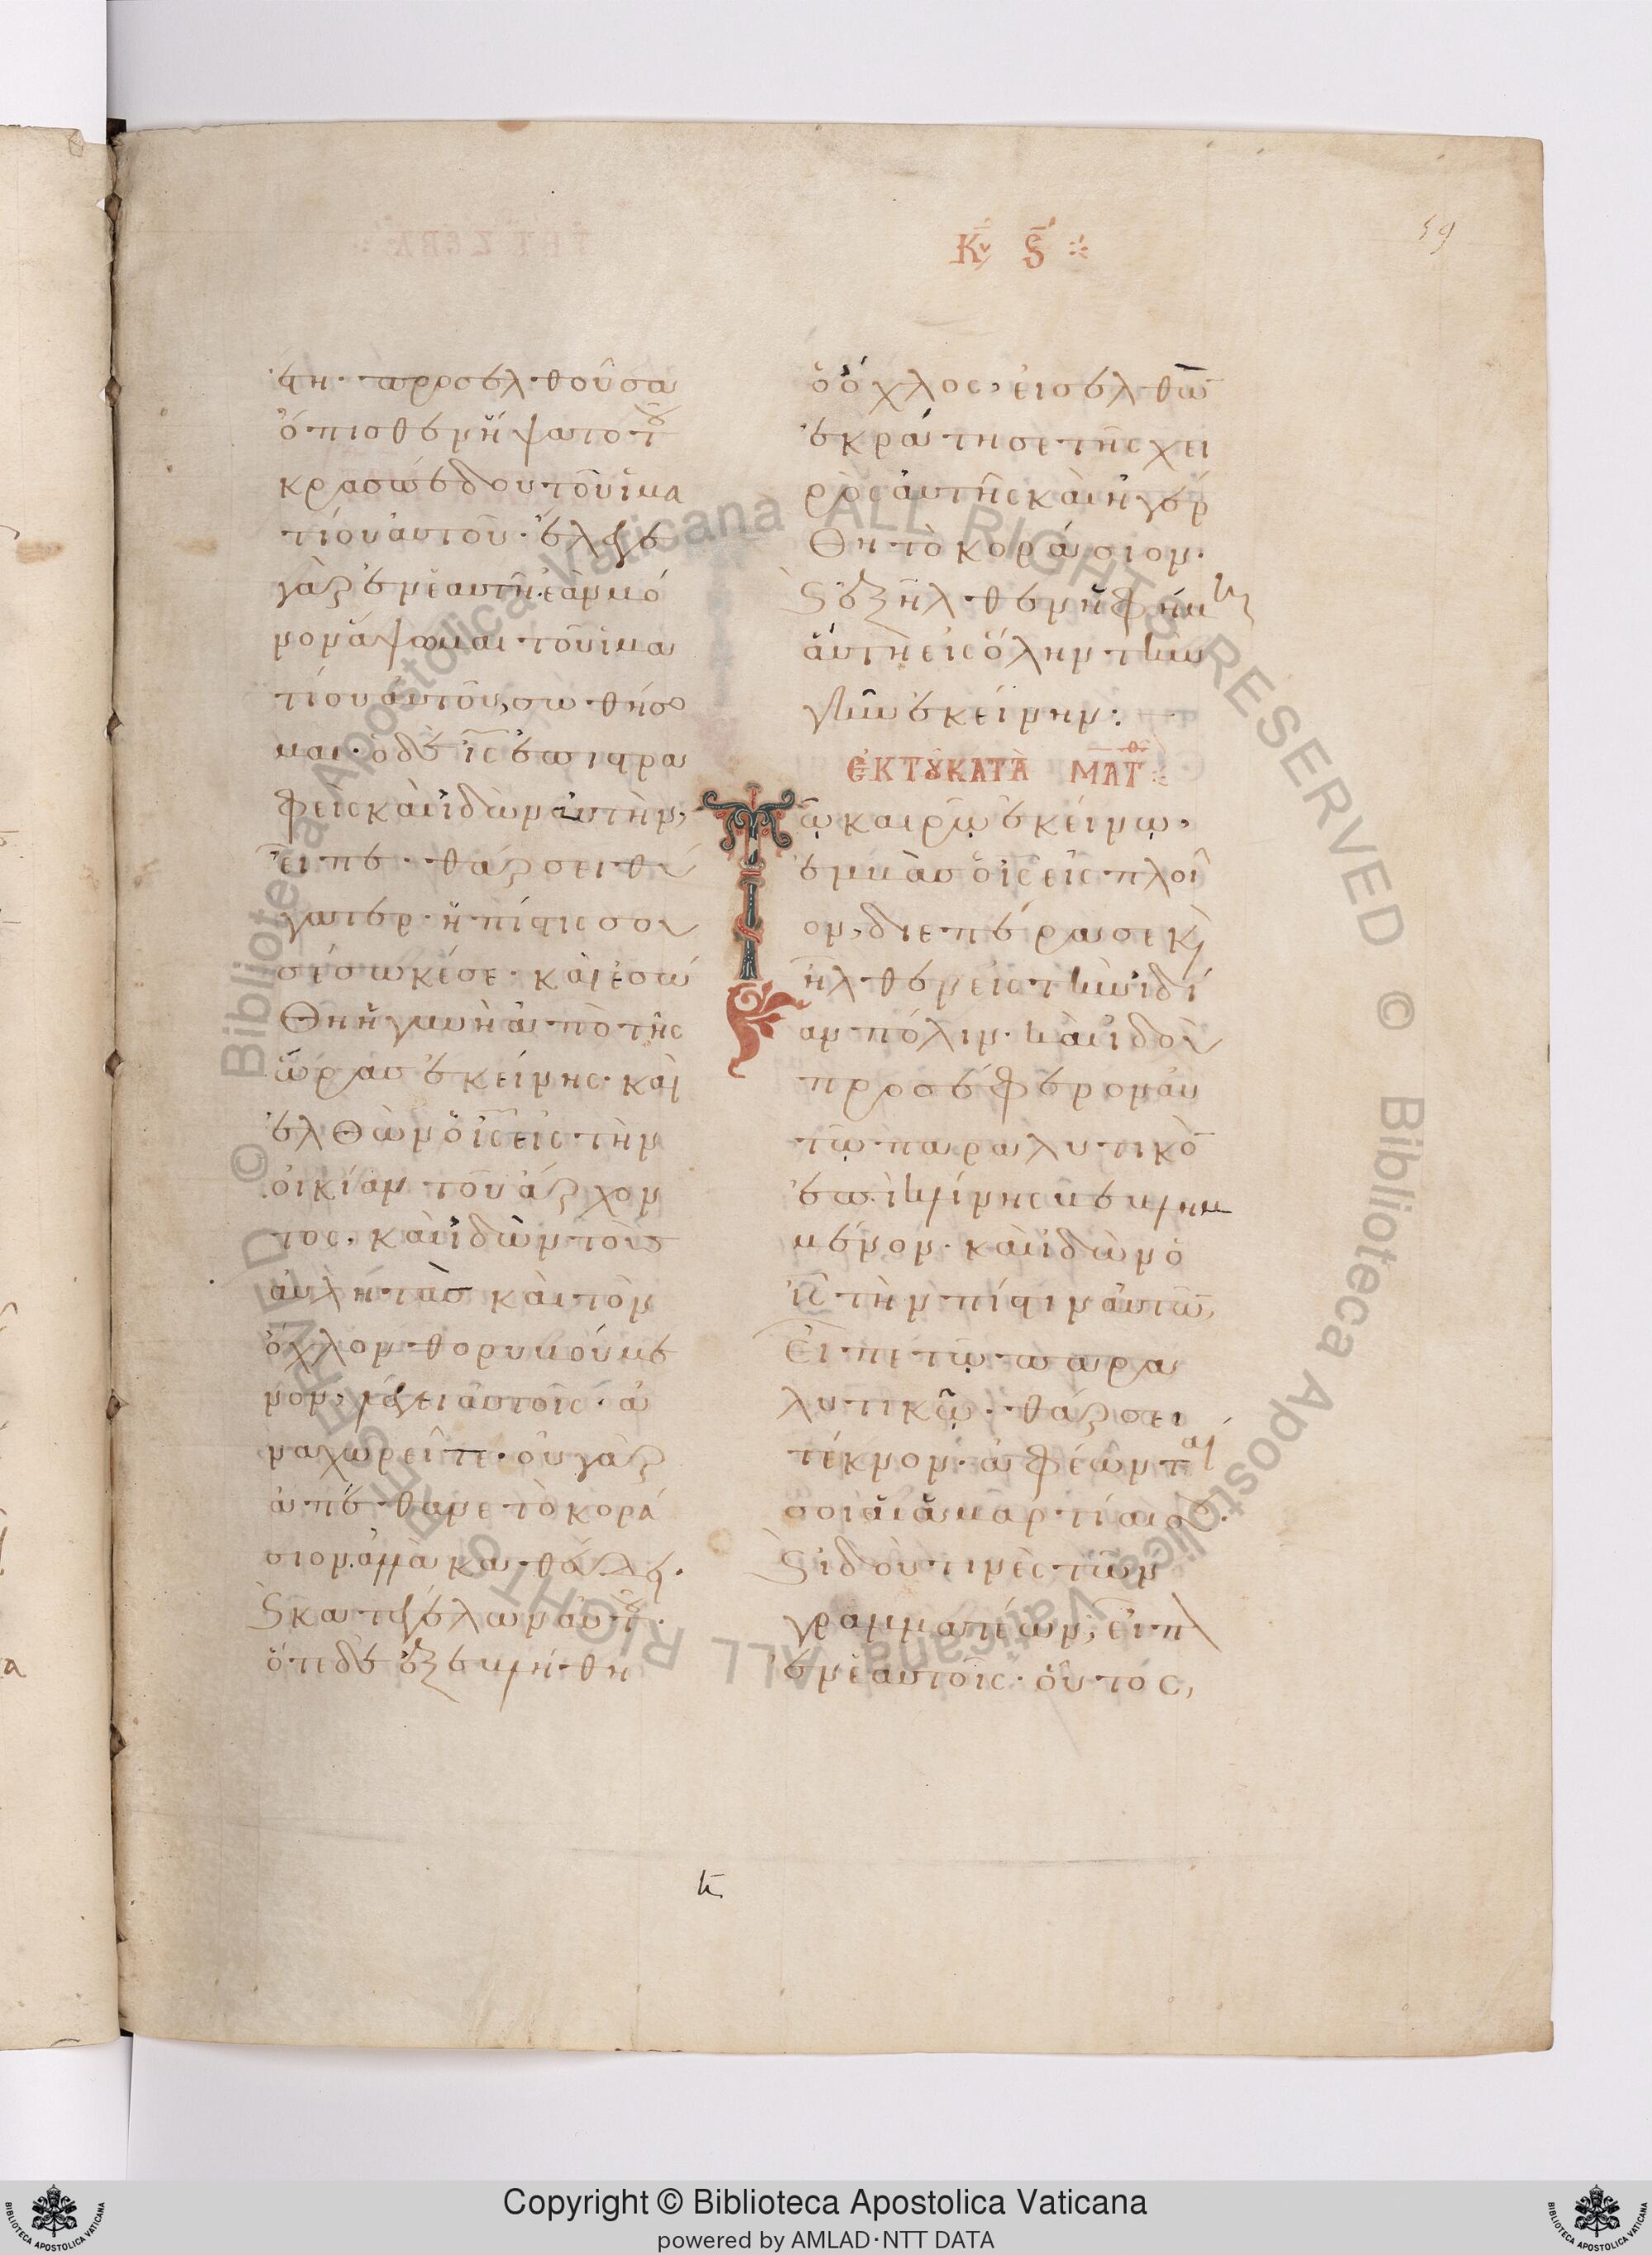 Κυ ς
59
ϛη· προσελθοῦσα
ὄπισθεν ἥψατο τοῦ
κρασπέδου τοῦ ἱμα
τίου αὐτοῦ· ἔλεγε
γὰρ ἐν ἑαυτῇ· ἐὰν μό
νον ἅψωμαι τοῦ ἱμα
τίου αὐτοῦ, σωθήσο
μαι· ὁ δὲ ις ἐπιστρα
φεὶς καὶ ἰδὼν αὐτὴν,
εἶπε· θάρσει θύ
γατερ· ἡ πίστις σου
σέσωκέ σε· καὶ ἐσώ
θη ἡ γυνὴ ἀπὸ τῆς
ὥρας ἐκείνης· καὶ
ἐλθὼν ὁ ις εἰς τὴν
οἰκίαν τοῦ ἄρχον
τος, καὶ ἰδὼν τοὺς
αὐλητὰς καὶ τὸν
ὄχλον θορυβούμε
νον, λέγει αὐτοῖς· ἀ
ναχωρεῖτε· οὐ γὰρ
ἀπέθανε τὸ κορά
σιον. ἀλλὰ καθεύδει·
ϗ κατεγέλων αὐτοῦ·
ὅτε δὲ ἐξεβλήθη
ὁ ὄχλος, εἰσελθὼ
ἐκράτησε τῆς χει
ρὸς αὐτῆς καὶ ἠγέρ
θη τὸ κοράσιον·
ϗ ἐξῆλθεν ἡ φήμη
αὕτη εἰς ὅλην τὴν
γῆν ἐκείνην:
ἐκ τοῦ κατὰ Ματθ
Τῷ καιρῷ ἐκείνῳ,
ἐμβὰς ὁ ις εἰς πλοῖ
ον, διεπέρασε ϗ
ἦλθεν εἰς τὴν ἰδί
αν πόλιν· καὶ ἰδοὺ
προσέφερον αὐ
τῷ παραλυτικὸ
ἐπὶ κλίνης βεβλη
μένον· καὶ ἰδὼν ὁ
ις τὴν πίστιν αὐτῶ,
εἶπε τῷ παρα
λυτικῷ· θάρσει
τέκνον· ἀφέωνται
σοι αἱ ἁμαρτίαι σου·
ϗ ἰδού τινὲς τῶν
γραμματέων, εἶπ
ἐν ἑαυτοῖς· οὗτος,
Copyright © Biblioteca Apostolica Vaticana
powered by AMLAD·NTT DATA